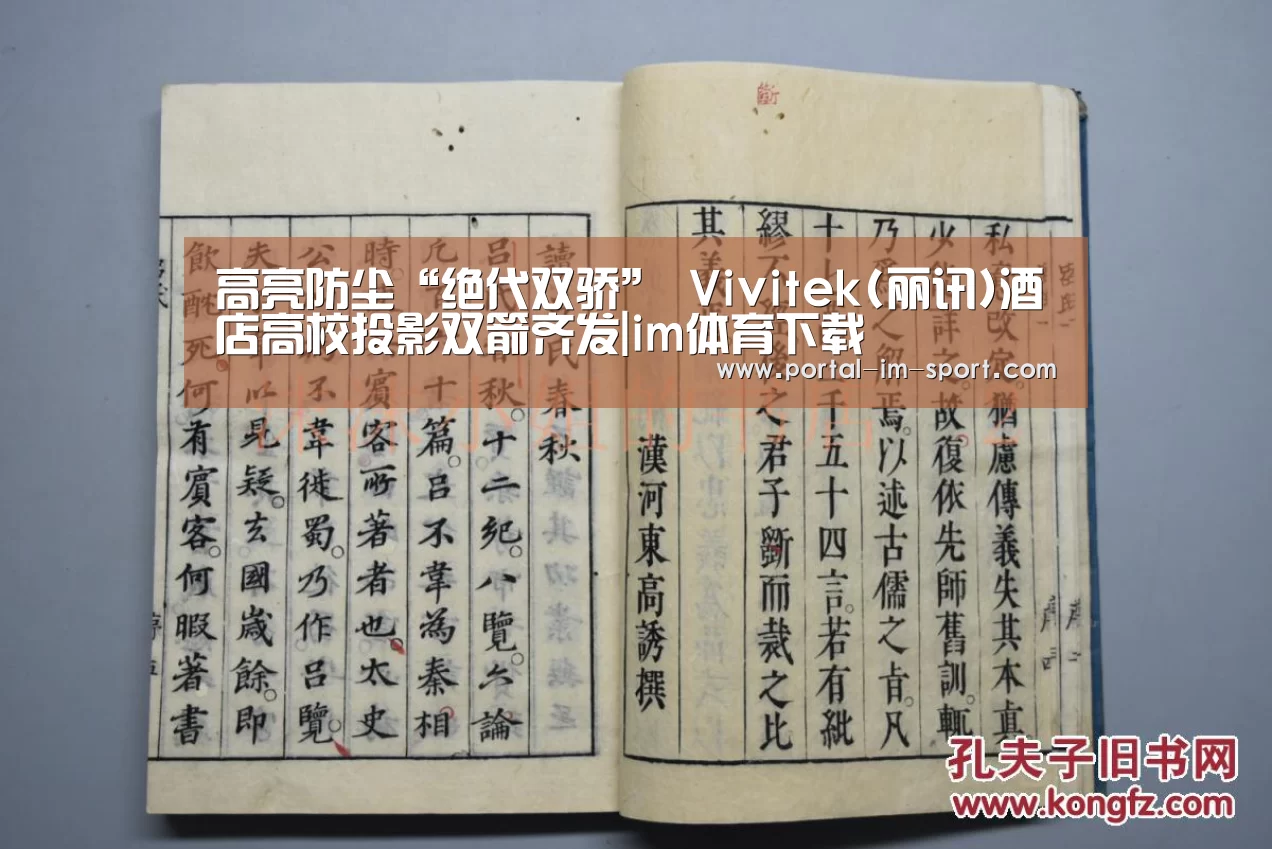 高亮防尘“绝代双骄” Vivitek(丽讯)酒
店高校投影双箭齐发|im体育下载
www.portal-im-sport.com
私
少
乃
十
繆不
其義
改定猶慮傳義失其本真
詳之故復依先師舊訓。輒
之解焉。以述古儒之旨。凡
千五十四言。若有紕
後之君子斷而裁之比
漢河東高誘撰
讀呂氏春秋
呂 秋。十二紀。八覽。六論
凡 十篇。呂不韋為秦相
時。 賓客所著者也。太史
公 不韋徙蜀。乃作呂覽。
夫 以見疑。去國歲餘。即
飲酖死。何有賓客。何暇著書
孔夫子旧书网
www.kongfz.com